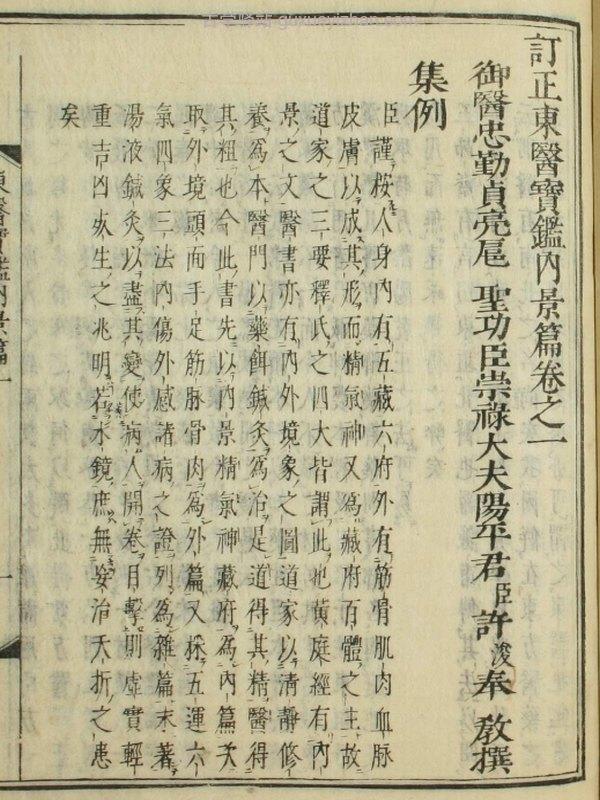 訂正東醫寶鑑內景篇卷之一
御醫忠勤貞亮扈 聖功臣崇祿大夫陽平君臣許浚奉 敎撰
集例
臣謹按人身內有五藏六府外有筋骨肌肉血脉
皮膚以成其形而精氣神又爲藏府百體之主故
道家之三要釋氏之四大皆謂此也黄庭經有內
景之文醫書亦有內外境象之圖道家以清靜修
養爲本醫門以藥餌鍼灸爲治是道得其精醫得
其粗也今此書先以內景精氣神藏府爲內篇次
取外境頭面手足筋脉骨肉爲外篇又採五運六
氣四象三法內傷外感諸病之證列爲雜篇末著
湯液鍼灸以盡其變使病人開卷目擊則虛實輕
重吉凶死生之兆明若水鏡庶無妄治夭折之患
矣
東醫寶鑑內景篇一